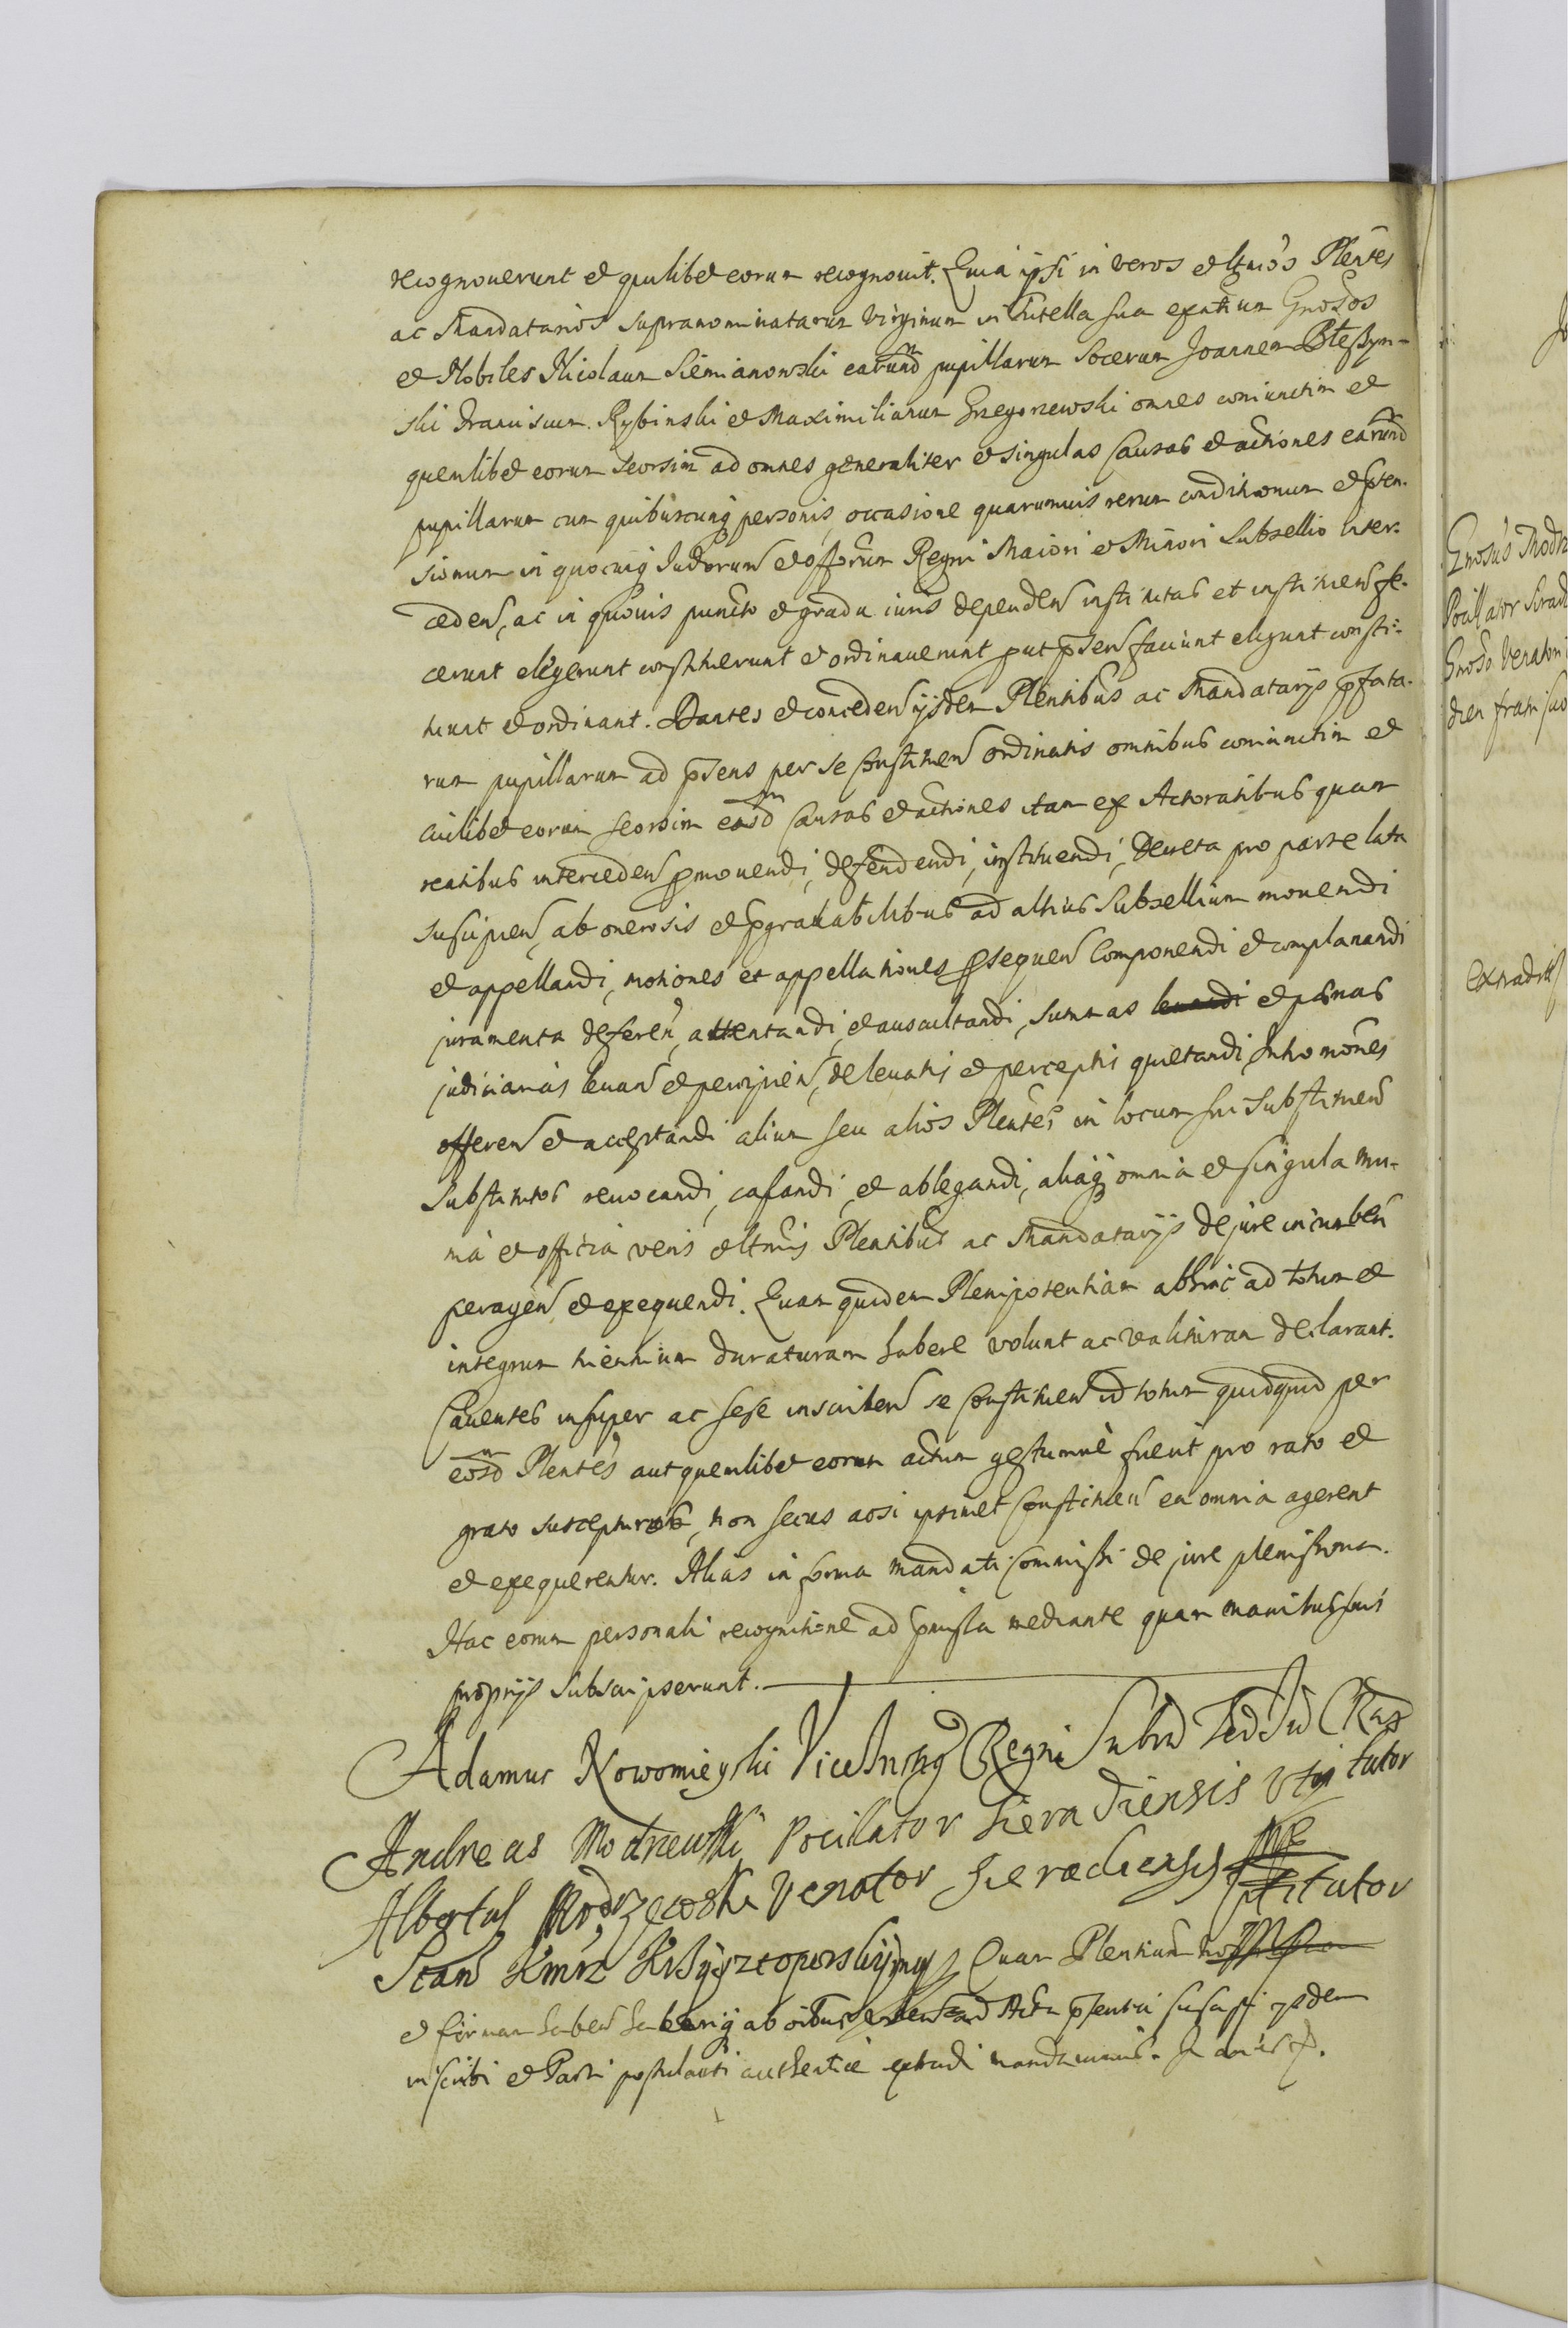 recognouerunt et quilibet eorum recognouit. Quia ipsi in veros et ltmos Plentes
ac Mandatarios supranominatarum Virginum in Tutella sua exntium Gnosos
et Nobiles Nicolaum Siemianowski earund pupillarum Socerum Joannem Bleszyn-
ski Franciscum Rybinski et Maximilianum Grzegorzewski omnes coniunctim et
quemlibet eorum seorsim ad omnes generaliter et singulas Causas et actiones earund
pupillarum cum quibuscunq personis, occasione quarumuis rerum conditionum et pten-
sionum in quocunq Judiorum et offorum Regni Maiori et Minori Subsellio inter-
ceden, ac in quouis puncto et gradu iuris dependen institutas et instituen fe-
cerunt elegerunt constituerunt et ordinauerunt put psen faciunt eligunt consti-
tuunt et ordinant. Dantes et conceden ijsdem Plentibus ac Mandatarijs pfata-
rum pupillarum ad psens per se Constituen ordinatis omnibus coniunctim et
cuilibet eorum seorsim easd Causas et actiones tam ex Actoratibus quam
reatibus interceden pmouendi, defendendi, instituendi, Decreta pro parte lata
suscipien, ab onerosis et pgrauabilibus ad altius Subsellium mouendi
et appellandi, motiones et appellationes psequen Componendi et complanandi
juramenta deferen, attentandi, et auscultandi, summas leuandi et poenas
judiciarias leuan et percipien, de leuatis et perceptis quietandi, Intromones
offeren et acceptandi alium seu alios Plentes in locum sui Substituen
Substitutos reuocandi, cassandi, et ablegandi, aliaq omnia et singula mu-
nia et officia veris et ltmis Plentibus ac Mandatarijs de jure incumben
peragen et exequendi. Quam quidem Plenipotentiam abhinc ad totum et
integrum triennium duraturam habere volunt ac valituram declarant.
Cauentes insuper ac sese inscriben se Constituen id totum quidquid per
eosd Plentes aut quemlibet eorum actum gestumue fuerit pro rato et
grato suscepturos, non secus acsi ipsimet Constituen ea omnia agerent
et exequerentur. Alias in forma mandati Commissi de jure plenissima.
Hac eorum personali recognitione ad pmissa mediante quam manibus suis
proprijs subscripserunt.
Adamus Nowomieyski Vice Regni
Andreas Modrzewski Pocillator Sieradiensis tutor
Albertus Modrzewski Venator Sieradiensis tutor
Quam Plentiam
et firmam haben ab oibus ad Acta psentia suscipi ijsdem
inscribi et Parti postulanti authentice extradi mandauimus.
Gnosus Modrz
Pocillator Sirad
Gnoso Venatori
dien fratri suo